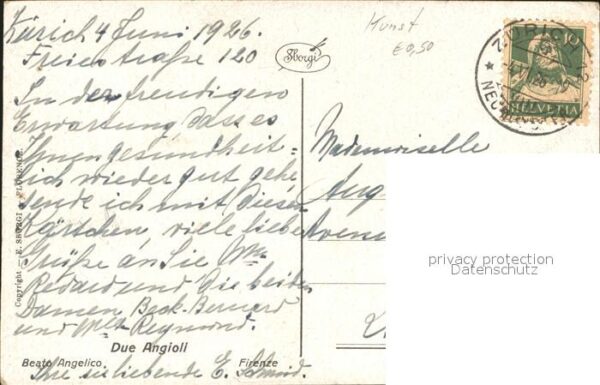 Zürich 4 Juni 1926.
Freiestraße 120
In der freudigen
Erwartung dass es
Ihnen gesundheit-
lich wieder gut gehe
sende ich mit diesen
Kärtchen viele liebe
Grüße an Sie Mme
Redard und die beiden
Damen Beck-Bernard
und Mlle Reymond.
Ihre Sie liebende E. Schmid.
Due Angioli
Beato Angelico Firenze
Copyright — E. SBORGI - FLORENCE
Sborgi
Kunst
€0,50
ZÜRICH
HELVETIA
Mademoiselle
Aug
Avenu
privacy protection
Datenschutz